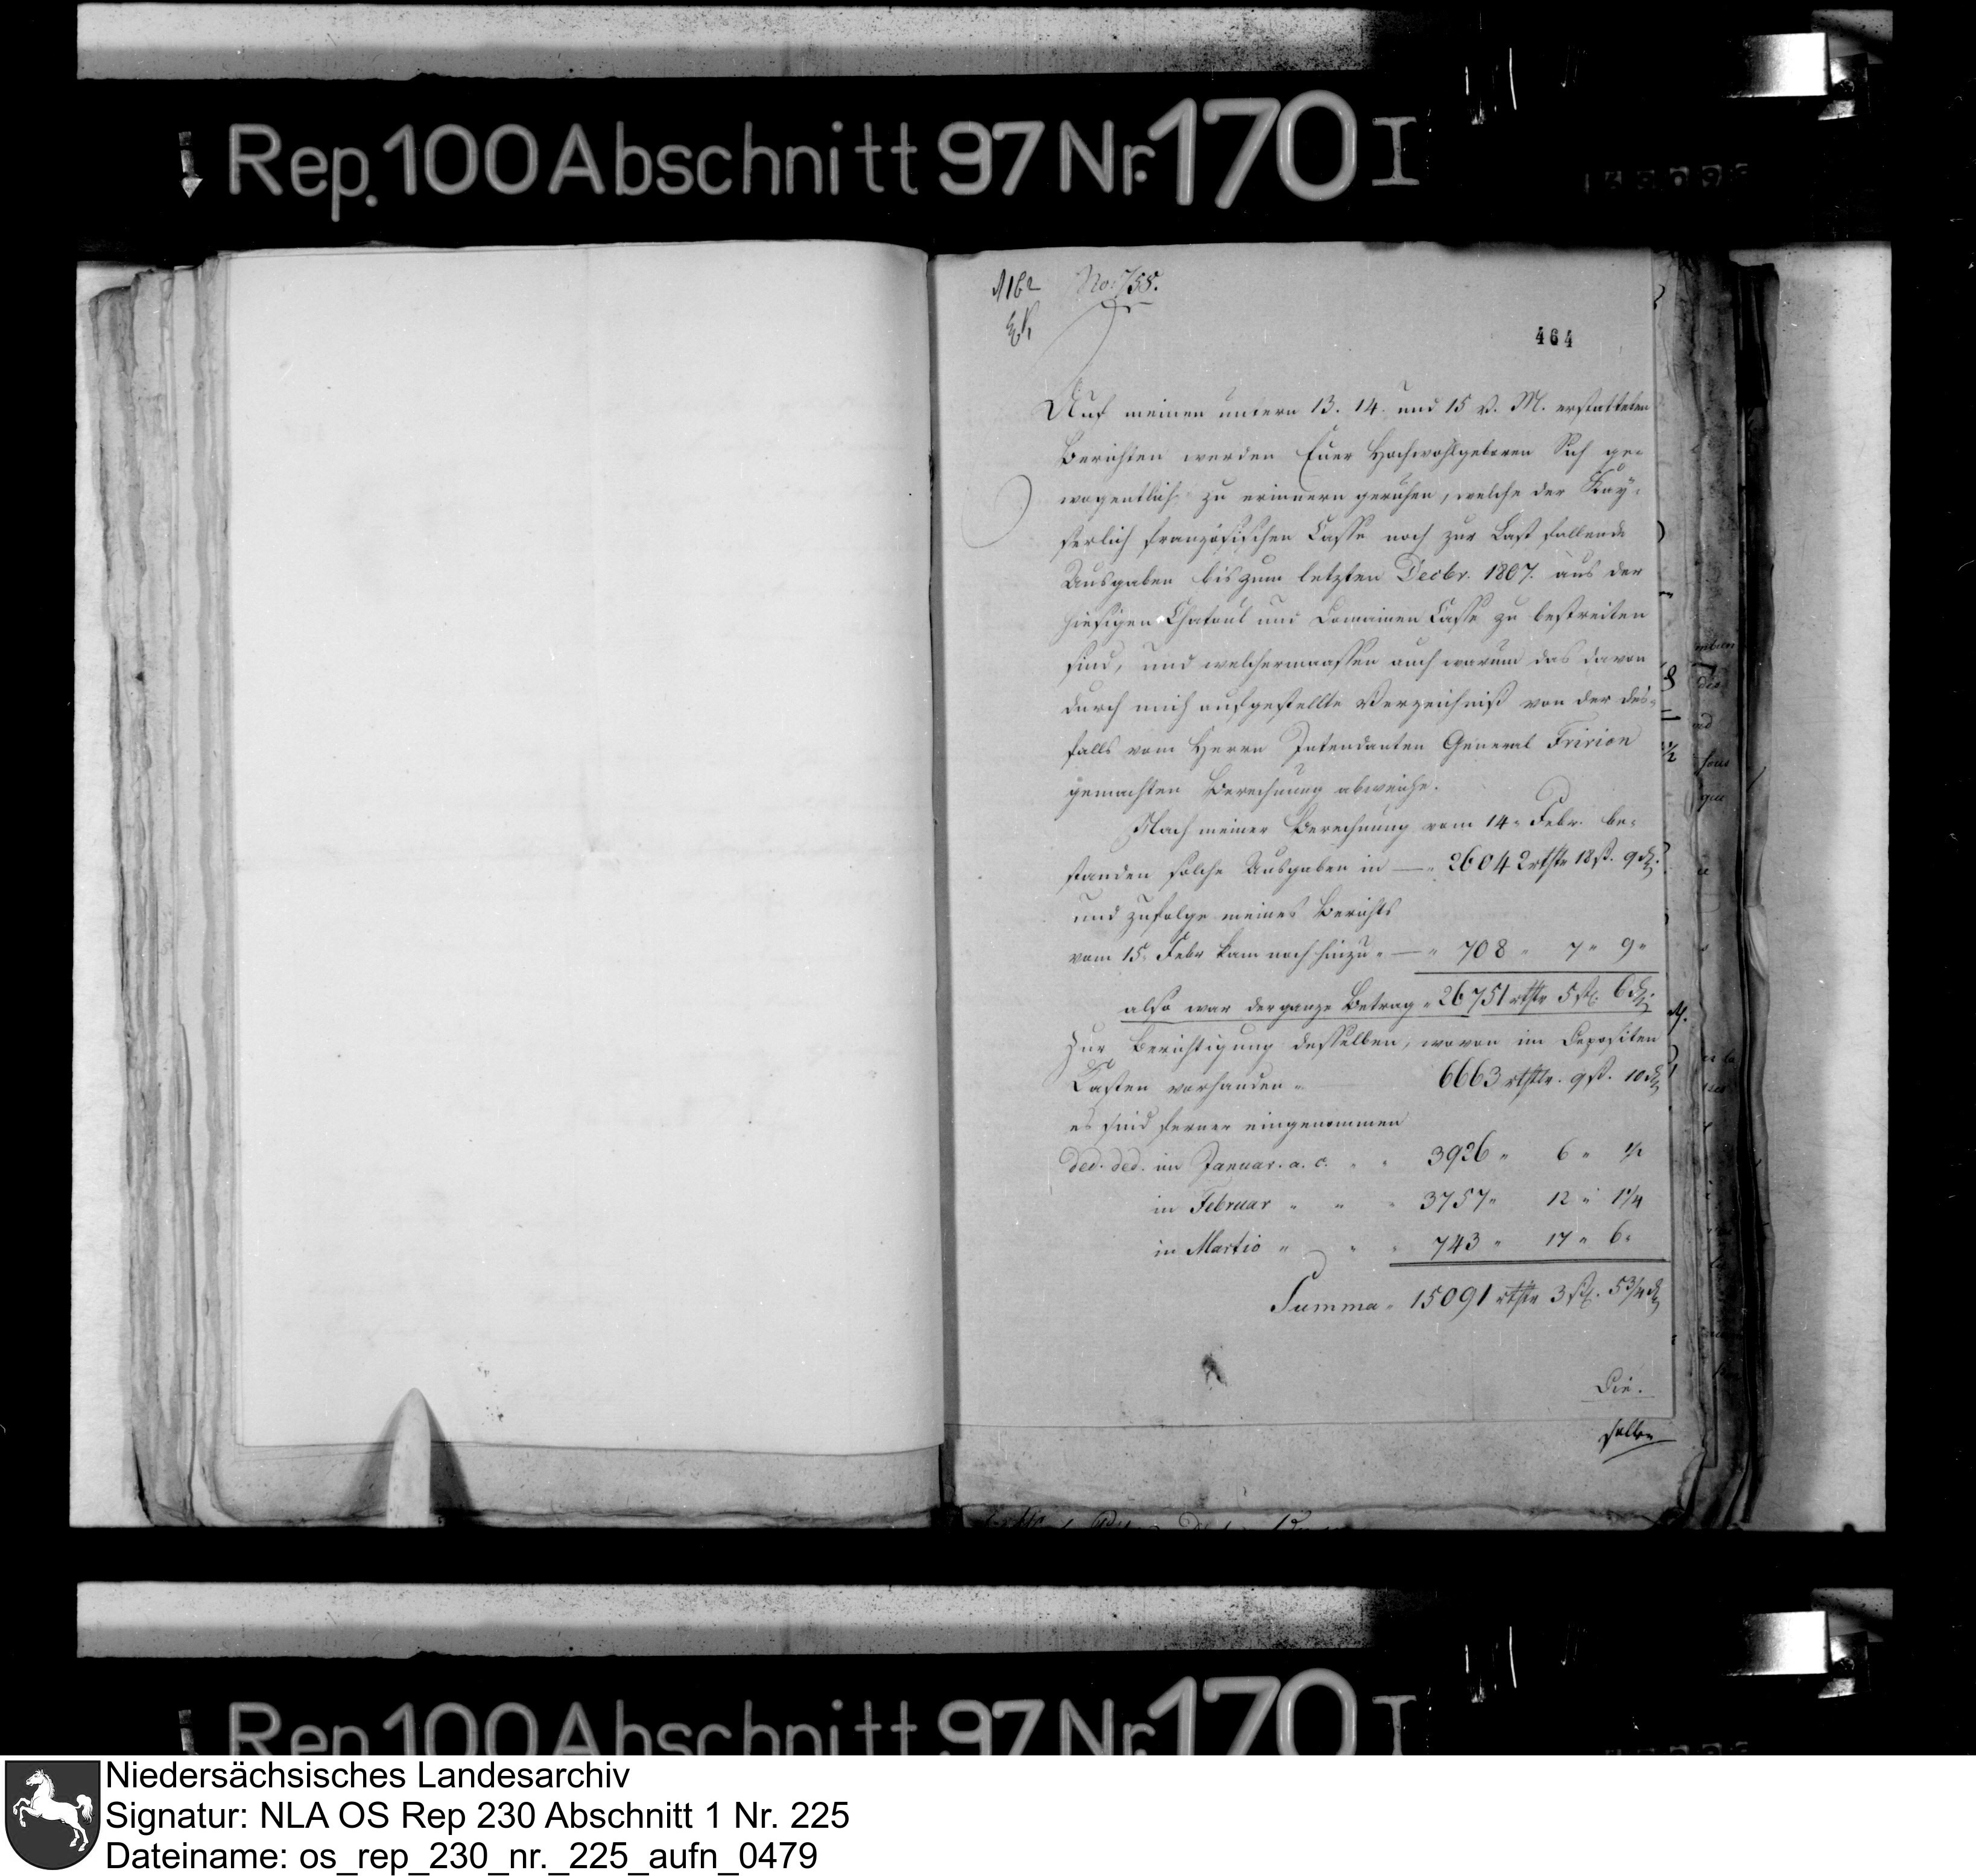 Rep. 100 Abschnitt 97 Nr. 170 I
1162 No. 755.
464
Auf meinen untern 13. 14. und 15 v. M. erstatteten
Berichten werden Euer Hochwohlgeboren Sich ge-
wogentlich zu erinnern geruhen, welche der Kay-
serlich französischen Casse noch zur Last fallende
Ausgaben bis zum letzten Decbr. 1807. aus der
hiesigen Chatoul und Domainen Casse zu bestreiten
sind, und welchermaassen auch warum das davon
durch mich aufgestellte Verzeichniß von der des-
falls vom Herrn Intendanten General Fririon
gemachten Berechnung abweiche.
Nach meiner Berechnung vom 14. Febr. be-
standen solche Ausgaben in — " 26042 rthlr 18 ß. 9 d.
und zufolge meines Berichts
vom 15. Febr kam noch hinzu " — " 708 " 7 " 9 "
also war der ganze Betrag " 26751 rthlr 5 ß. 6 d.
Zur Berichtigung desselben, wovon im Depositen
Casten vorhanden " 6663 rthlr. 9 ß. 10 d.
es sind ferner eingenommen
ded. ded. im Januar. a. c. " " 3926 " 6 " 1/2
in Februar " " " 3757 " 12 " 1 1/4
in Martio " " " 743 " 17 " 6 "
Summa " 15091 rthlr 3 ß. 5 3/4 d.
Die.
Rep. 100 Abschnitt 97 Nr. 170 I
Niedersächsisches Landesarchiv
Signatur: NLA OS Rep 230 Abschnitt 1 Nr. 225
Dateiname: os_rep_230_nr._225_aufn_0479